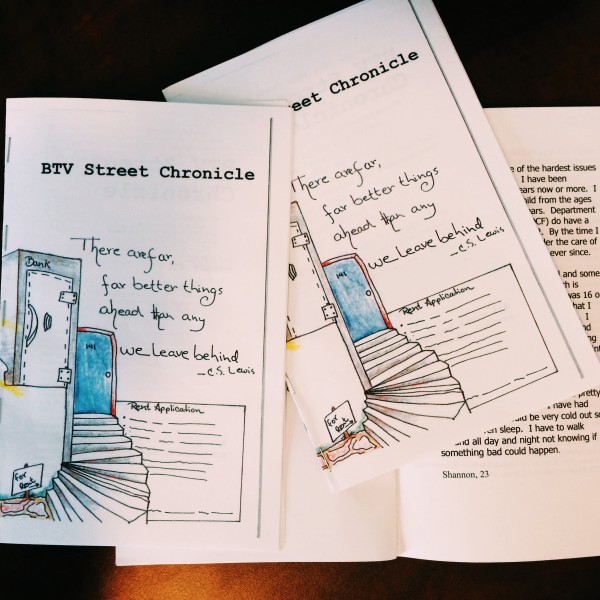 BTV Street Chronicle
There are far,
far better things
ahead than any
we leave behind
- C.S. Lewis
Bank
Rent Application
For
Rent
eet Chronicle
There are far,
far better things
ahead than any
we leave behind
- C.S. Lewis
Rent Application
For
Rent
e of the hardest issues
I have been
ears now or more. I
ild from the ages
ars. Department
DCF) do have a
. By the time I
der the care of
ever since.
d and some
h is
was 16 o
hat I
I
pretty
have had
ld be very cold out so
en sleep. I have to walk
nd all day and night not knowing if
something bad could happen.
Shannon, 23